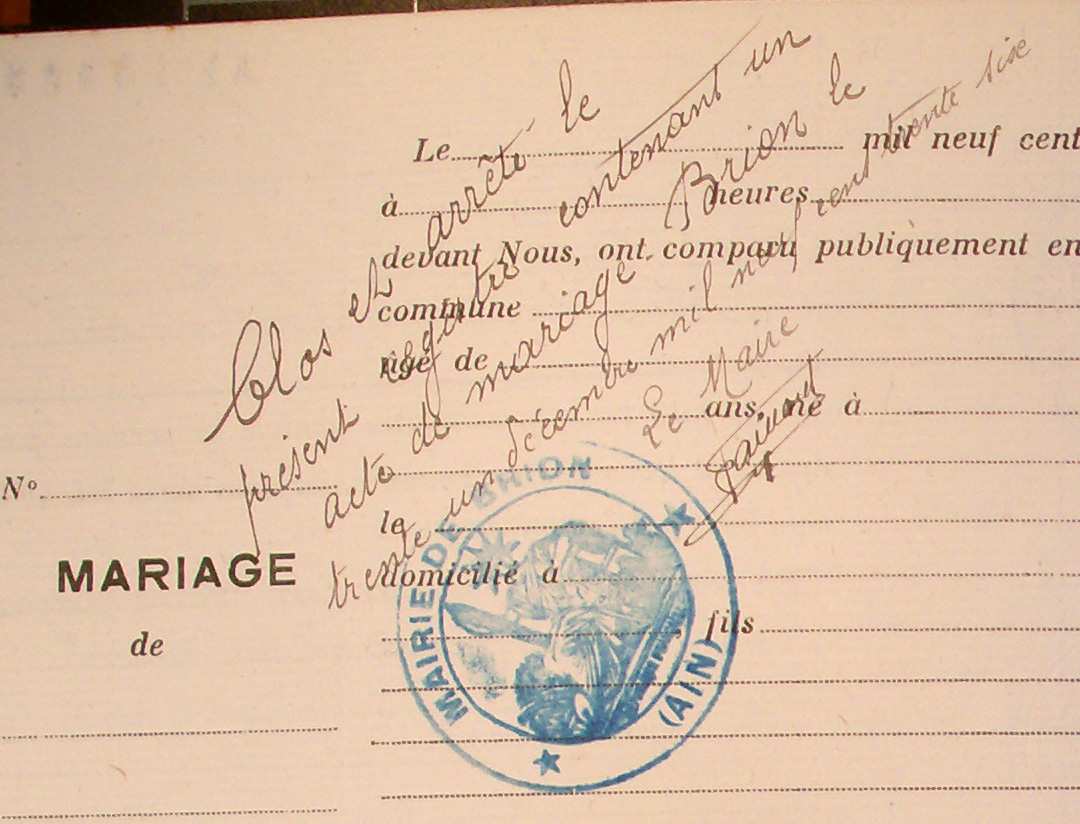 Clos et arrêté le
présent registre contenant un
acte de mariage. Brion le
trente un Décembre mil neuf cent trente six
Le Maire
Le mil neuf cent
à heures
devant Nous, ont comparu publiquement en
commune
âgé de
ans, né à
le
domicilié à
, fils
N°
MARIAGE
de
MAIRIE DE BRION
(AIN)